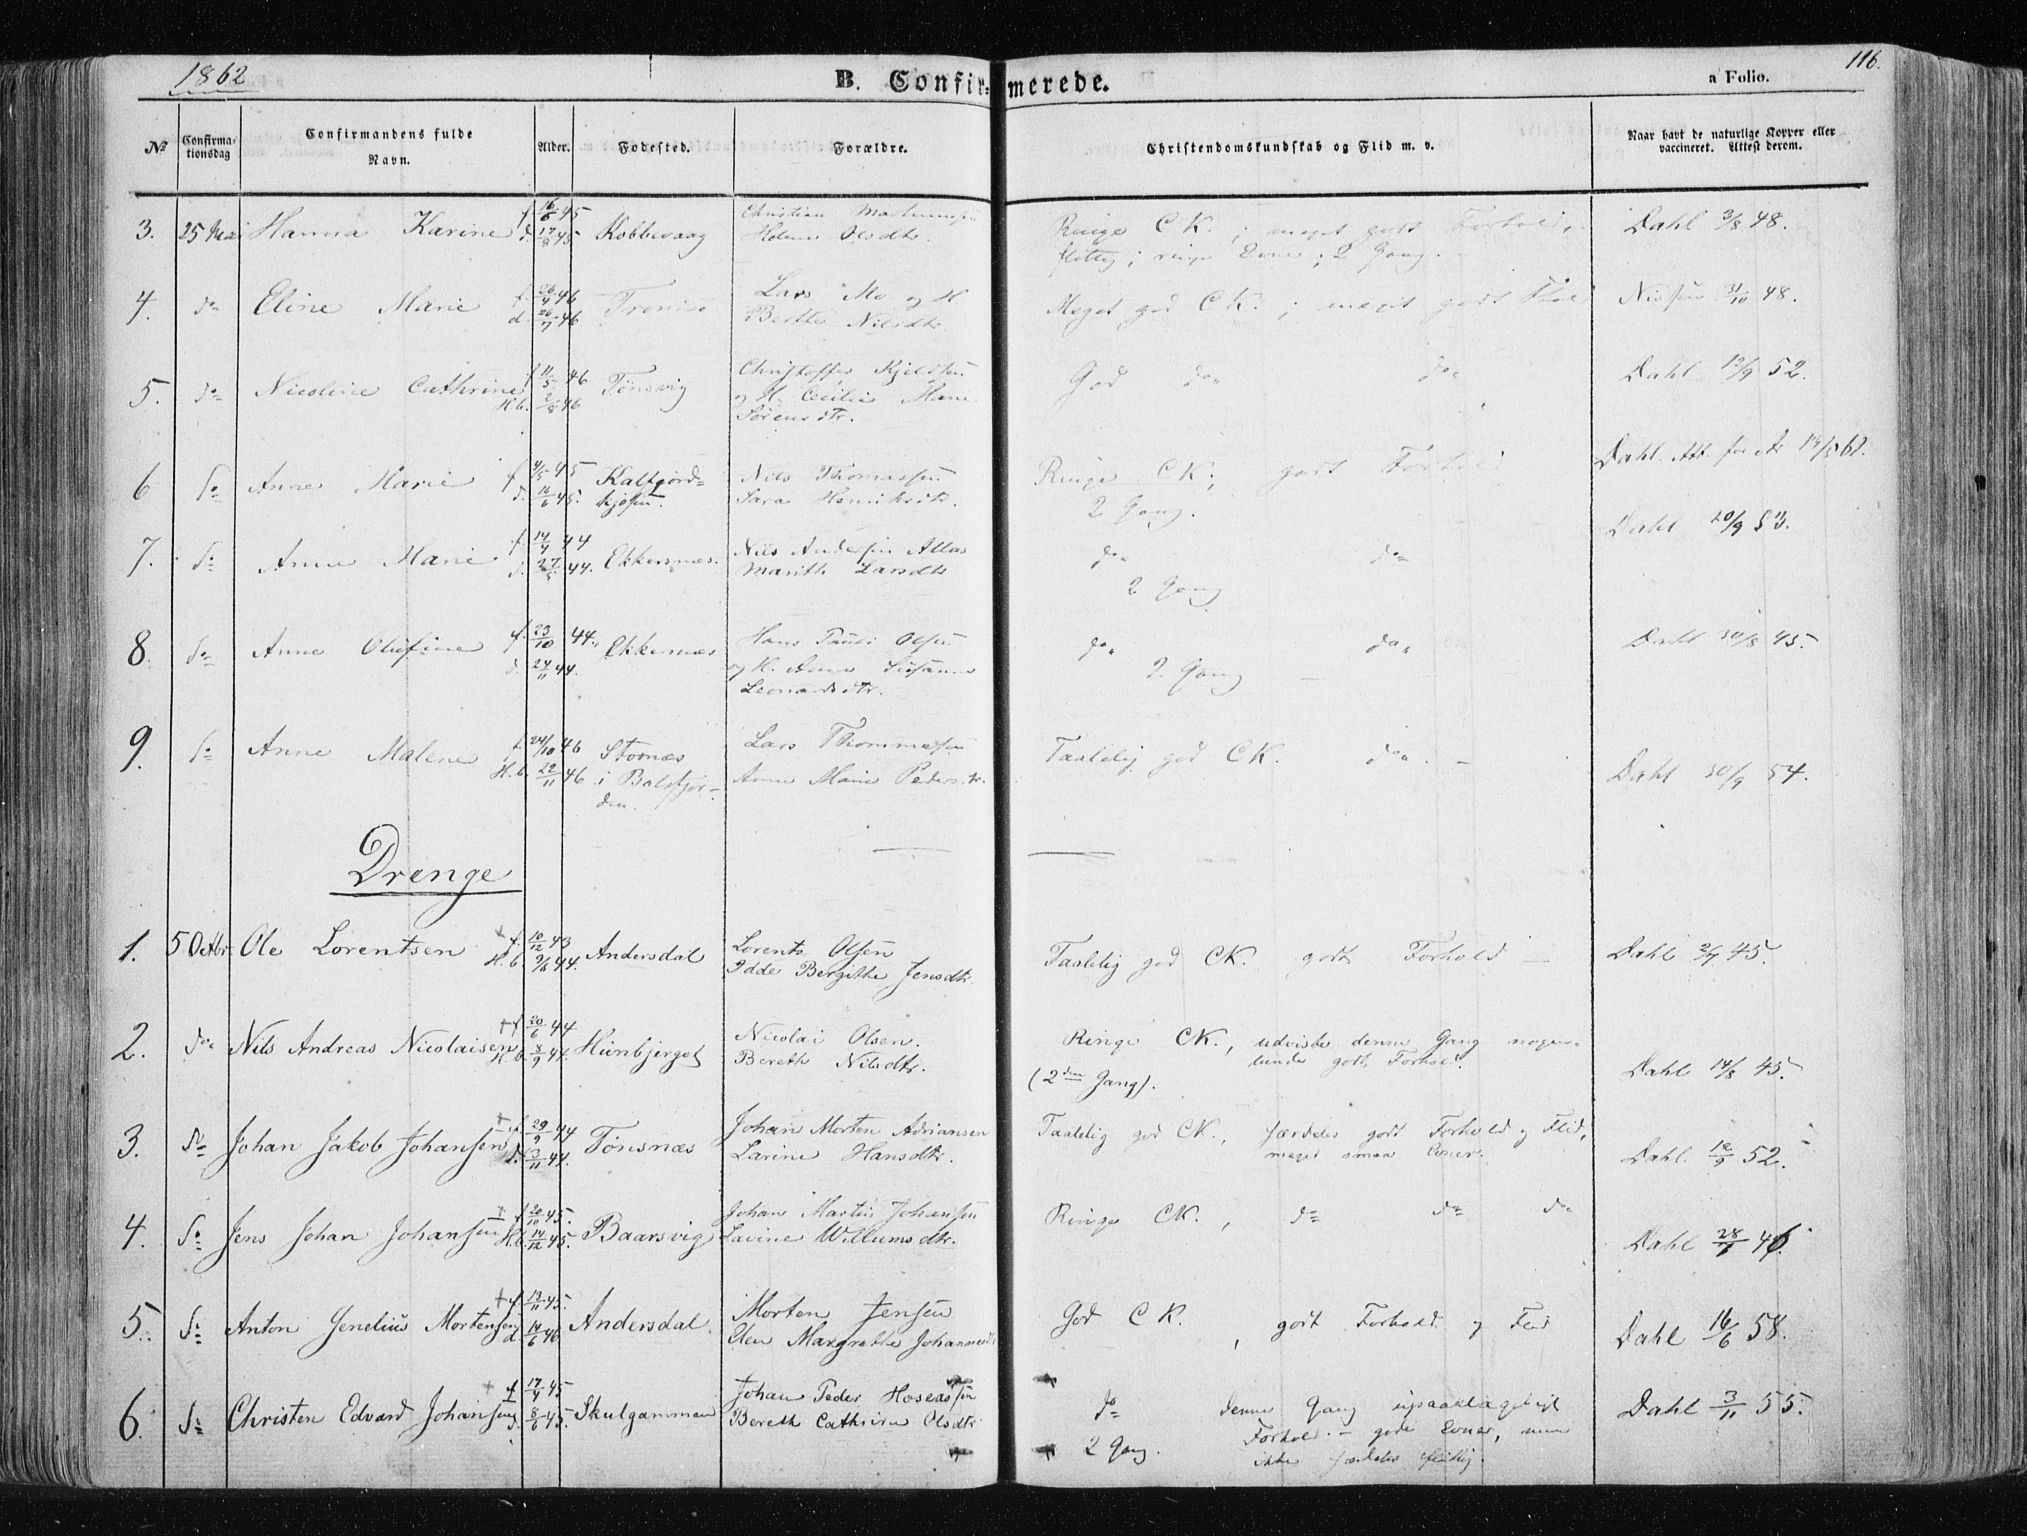 1862 B. Confirmerede. a Folio. 116.
No Confirmationsdag Confirmandens fulde Navn. Alder. Fødested. Forældre. Christendomskundskab og Flid m. v. Naar havt de naturlige Kopper eller vaccineret. Attest derom.
3. 25 Mai Hanna Karine f. 16/6 45 Kobbevaag Christian Ringe C K. ; meget godt Forhold, Dahl 3/8 48.
d. 17/8 45 Helene Olsdtr. flittig ; ringe Evner ; 2 Gang.
4. do Eline Marie f. 26/4 46 Tromsø Lars Mo og H Meget god C K. ; meget godt Nielsen 31/10 48.
d. 26/7 46 Berthe Nilsdtr.
5. do Nicoline Cathrine f 11/5 46 Tønsvig Christoffer Kjeldsen God do do Dahl 12/9 52.
H.b. 2/8 46 og H. Cecilie Marie
Sørensdtr.
6 do Anne Marie f 4/5 45 Kalfjord= Nils Thomassen Ringe CK; godt Forhold Dahl. Att. fra
d. 16/6 45. kjosen. Sara Henriksdtr. 2 Gang.
7. do Anne Marie f. 14/4 44 Ekkersnæs. Nils Andersen Allas do do Dahl 20/9 53.
d. 27/5 44. Marith Larsdtr 2 Gang
8. do Anne Olufine f. 23/10 44. Ekkernæs Hans Olsen do do Dahl 30/8 45.
d. 24/11 44. og H. Anne Susanne 2 Gang
Leonardsdtr.
9. do Anne Malene f. 24/10 46 Stornæs Lars Thommesen Taalelig god C K. do Dahl 30/9 54.
H.b. 22/11 46 i Balsfjor- Anne Marie Pedersdtr.
den.
Drenge
1. 5 Octbr. Ole Lorentsen f. 10/12 43 Andersdal Lorents Olsen Taalelig god CK. godt Forhold Dahl 2/7 45.
H.b. 9/6 44. Idde Bergithe Jensdtr
2. do Nils Andreas Nicolaisen f 20/6 44 Hunbjerget Nicolai Olsen. Ringe CK., udviste denne Gang nogen- Dahl 14/8 45.
H.b. 8/9 44. Bereth Nilsdtr. (2den Gang). lunde godt Forhold.
3. do Johan Jakob Johansen f. 29/9 44 Tønsnæs Johan Morten Adriansen Taalelig god CK., særdeles godt Forhold og Flid, Dahl. 12/9 52.
d. 3/11 44. Larine Hansdtr. meget smaa Evner.
4. do Jens Johan Johansen f 20/10 45. Baarsvig Johan Martin Johansen Ringe CK., do do do Dahl 28/7 46.
H.b. 14/12 45. Lavine Willumsdtr.
5. do Anton Jenelius Mortensen f. 13/11 45. Andersdal Morten Jensen God C K., godt Forhold og Flid Dahl 16/6 58.
d. 14/6 46 Elen Margrethe Johannesdtr
6. do Christen Edvard Johansen f 17/4 45 Skulgammen Johan Peder Hoseassen do denne Gang upaaklageligt Dahl 3/11 55.
d. 8/6 45. Bereth Cathrine Olsdtr 2 Gang. Forhold. - gode Evner, men
ikke særdeles flittig.